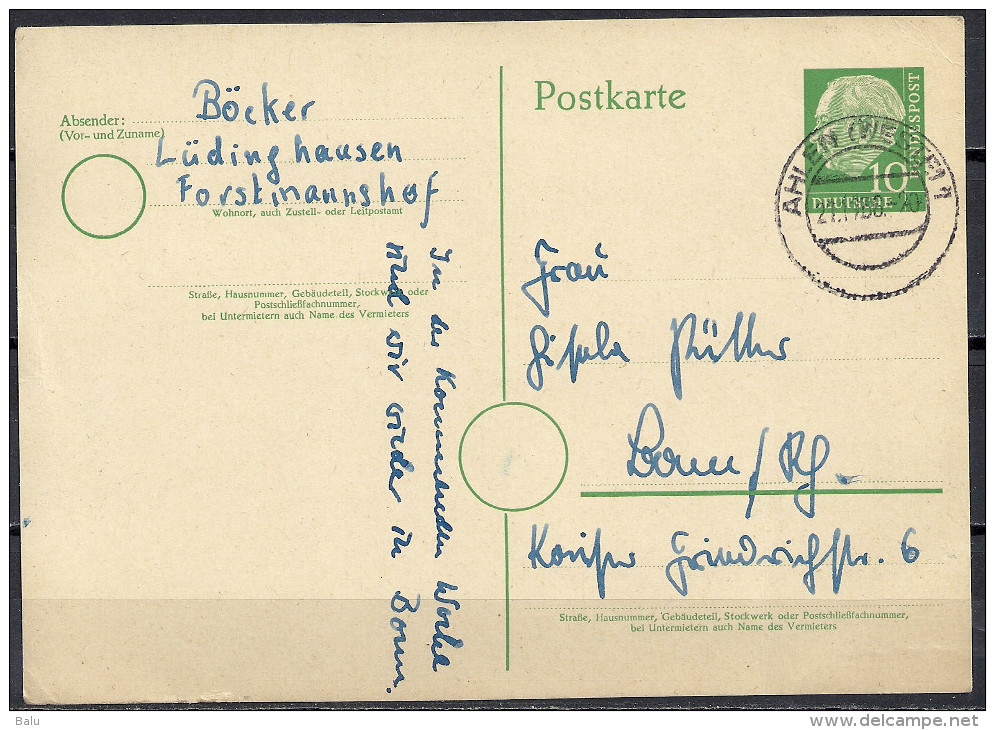 Absender:
(Vor- und Zuname)
Böcker
Lüdinghausen
Forstmannshof
Wohnort, auch Zustell- oder Leitpostamt
Straße, Hausnummer, Gebäudeteil, Stockwerk oder
Postschließfachnummer,
bei Untermietern auch Name des Vermieters
In der kommenden Woche
sind wir wieder in Bonn.
Postkarte
DEUTSCHE
BUNDESPOST
10
AHLEN (WESTF) 1
Frau
Gisela Pütter
Bonn/Rh.
Kaiser Friedrichstr. 6
Straße, Hausnummer, Gebäudeteil, Stockwerk oder Postschließfachnummer,
bei Untermietern auch Name des Vermieters
Balu
delcampe.net